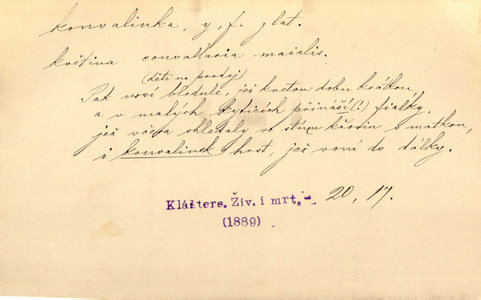 konvalinka, y, f. zlat.
květina convallaria maialis.
(děti na prodej)
Pak nosí bledule, jež kvetou dobu krátkou,
a v malých kyticích přináší(!) fialky,
jež včera shledaly ve stínu křovin s matkou,
i konvalinek host, jež voní do dálky.
Klášters. Živ. i mrt. - 20, 17.
(1889)